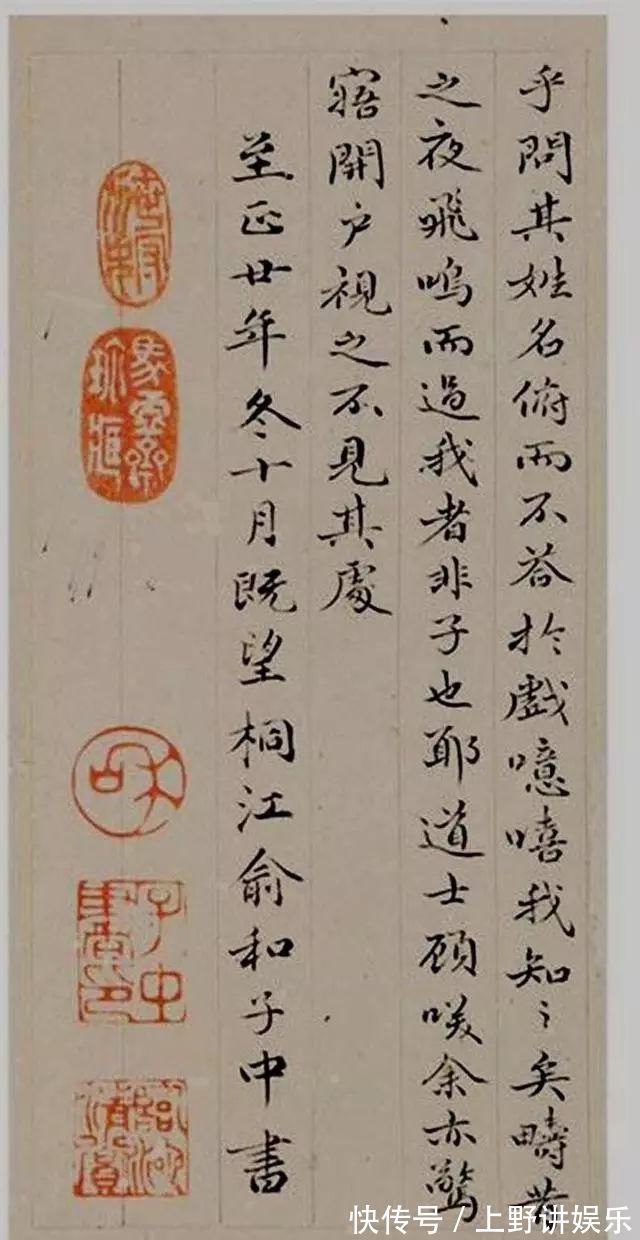 乎問其姓名俯而不荅扵戲噫嘻我知〻矣疇昔
之夜飛鳴而過我者非子也耶道士顧咲余亦驚
寤開户視之不見其處
至正廿年冬十月既望桐江俞和子中書
和
子中
快传号/上野讲娱乐